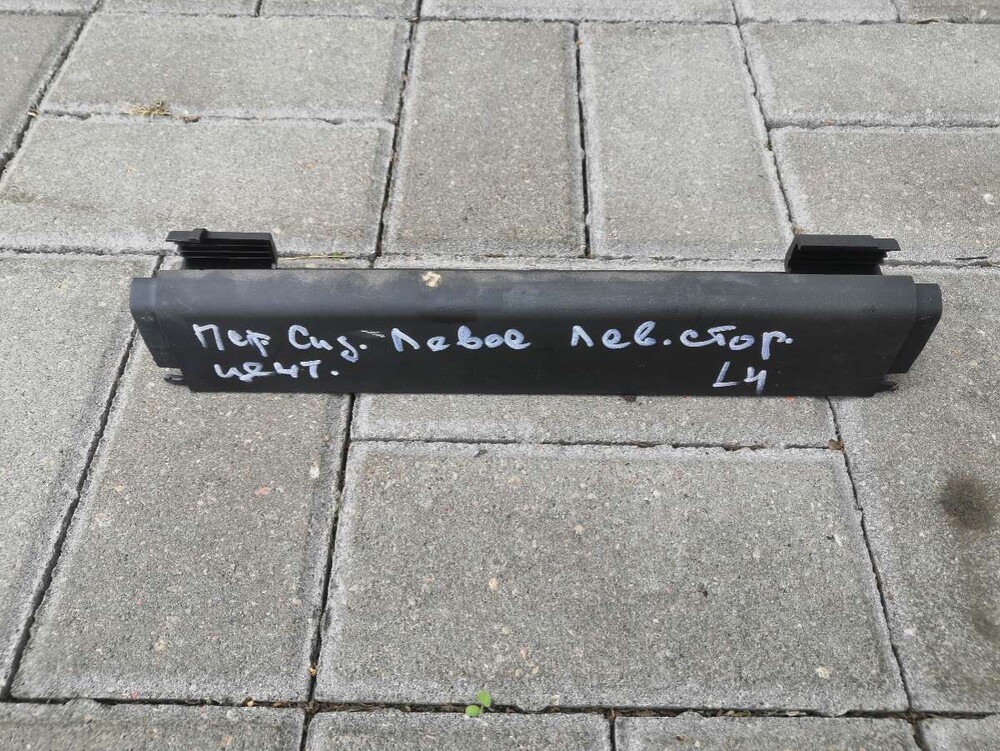 Пер Сид. Левое лев. стор.
цент. L4